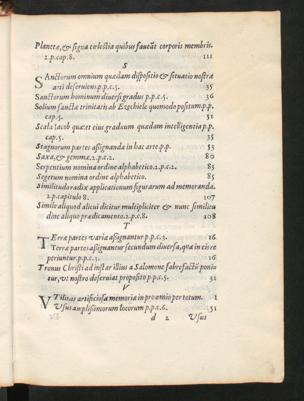 Planetæ, & signa cœlestia quibus faueãt corporis membris.
2.p.cap.8. 111
S
SAnctorum omnium quædam dispositio & situatio nostræ
arti deseruiens.p.p.c.5. 35
Sanctorum hominum diuersi gradus p.p.c.5. 36
Solium sanctæ trinitatis ab Ezechiele quomodo positum.p.p.
cap.5. 31
Scala Iacob quæ et eius graduum quædam intelligentia p.p.
cap.5. 35
Stagnorum partes assignanda in hac arte.p.p. 53
Saxa, & gemmæ.2.p.c.2. 80
Serpentium nomina ordine alphabetico.2.p.c.2. 85
Segetum nomina ordine alphabetico. 85
Similitudo radix applicationum figurarum ad memoranda.
2.p.capitulo 8. 107
Simile aliquod alicui dicitur multipliciter & nunc similitu
dine aliquo prædicamento.2.p.c.8. 108
T
TErræ partes varia assignantur p.p.c.3. 16
Terræ partes assignantur secundum diuersa, quæ in ea re
periuntur.p.p.c.3. 16
Tronus Christi ad instar illius a Salomone fabrefacti poni
tur, vt nostro deseruiat proposito p.p.c.5. 32
V
VTilitas artificiosæ memoriæ in proœmio per totum. 1
Vsus amplissimorum locorum p.p.c.6. 51
d 2 Vsus